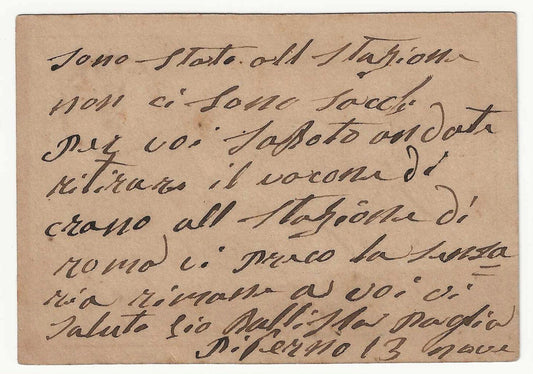 sono stato all stazione
non ci sono sacchi
per voi saboto andate
ritirare il vacone di
crano all stazione di
roma vi preco la senza
ria rimane a voi vi
saluto Gio Battista Paglia
Piperno 13 nove